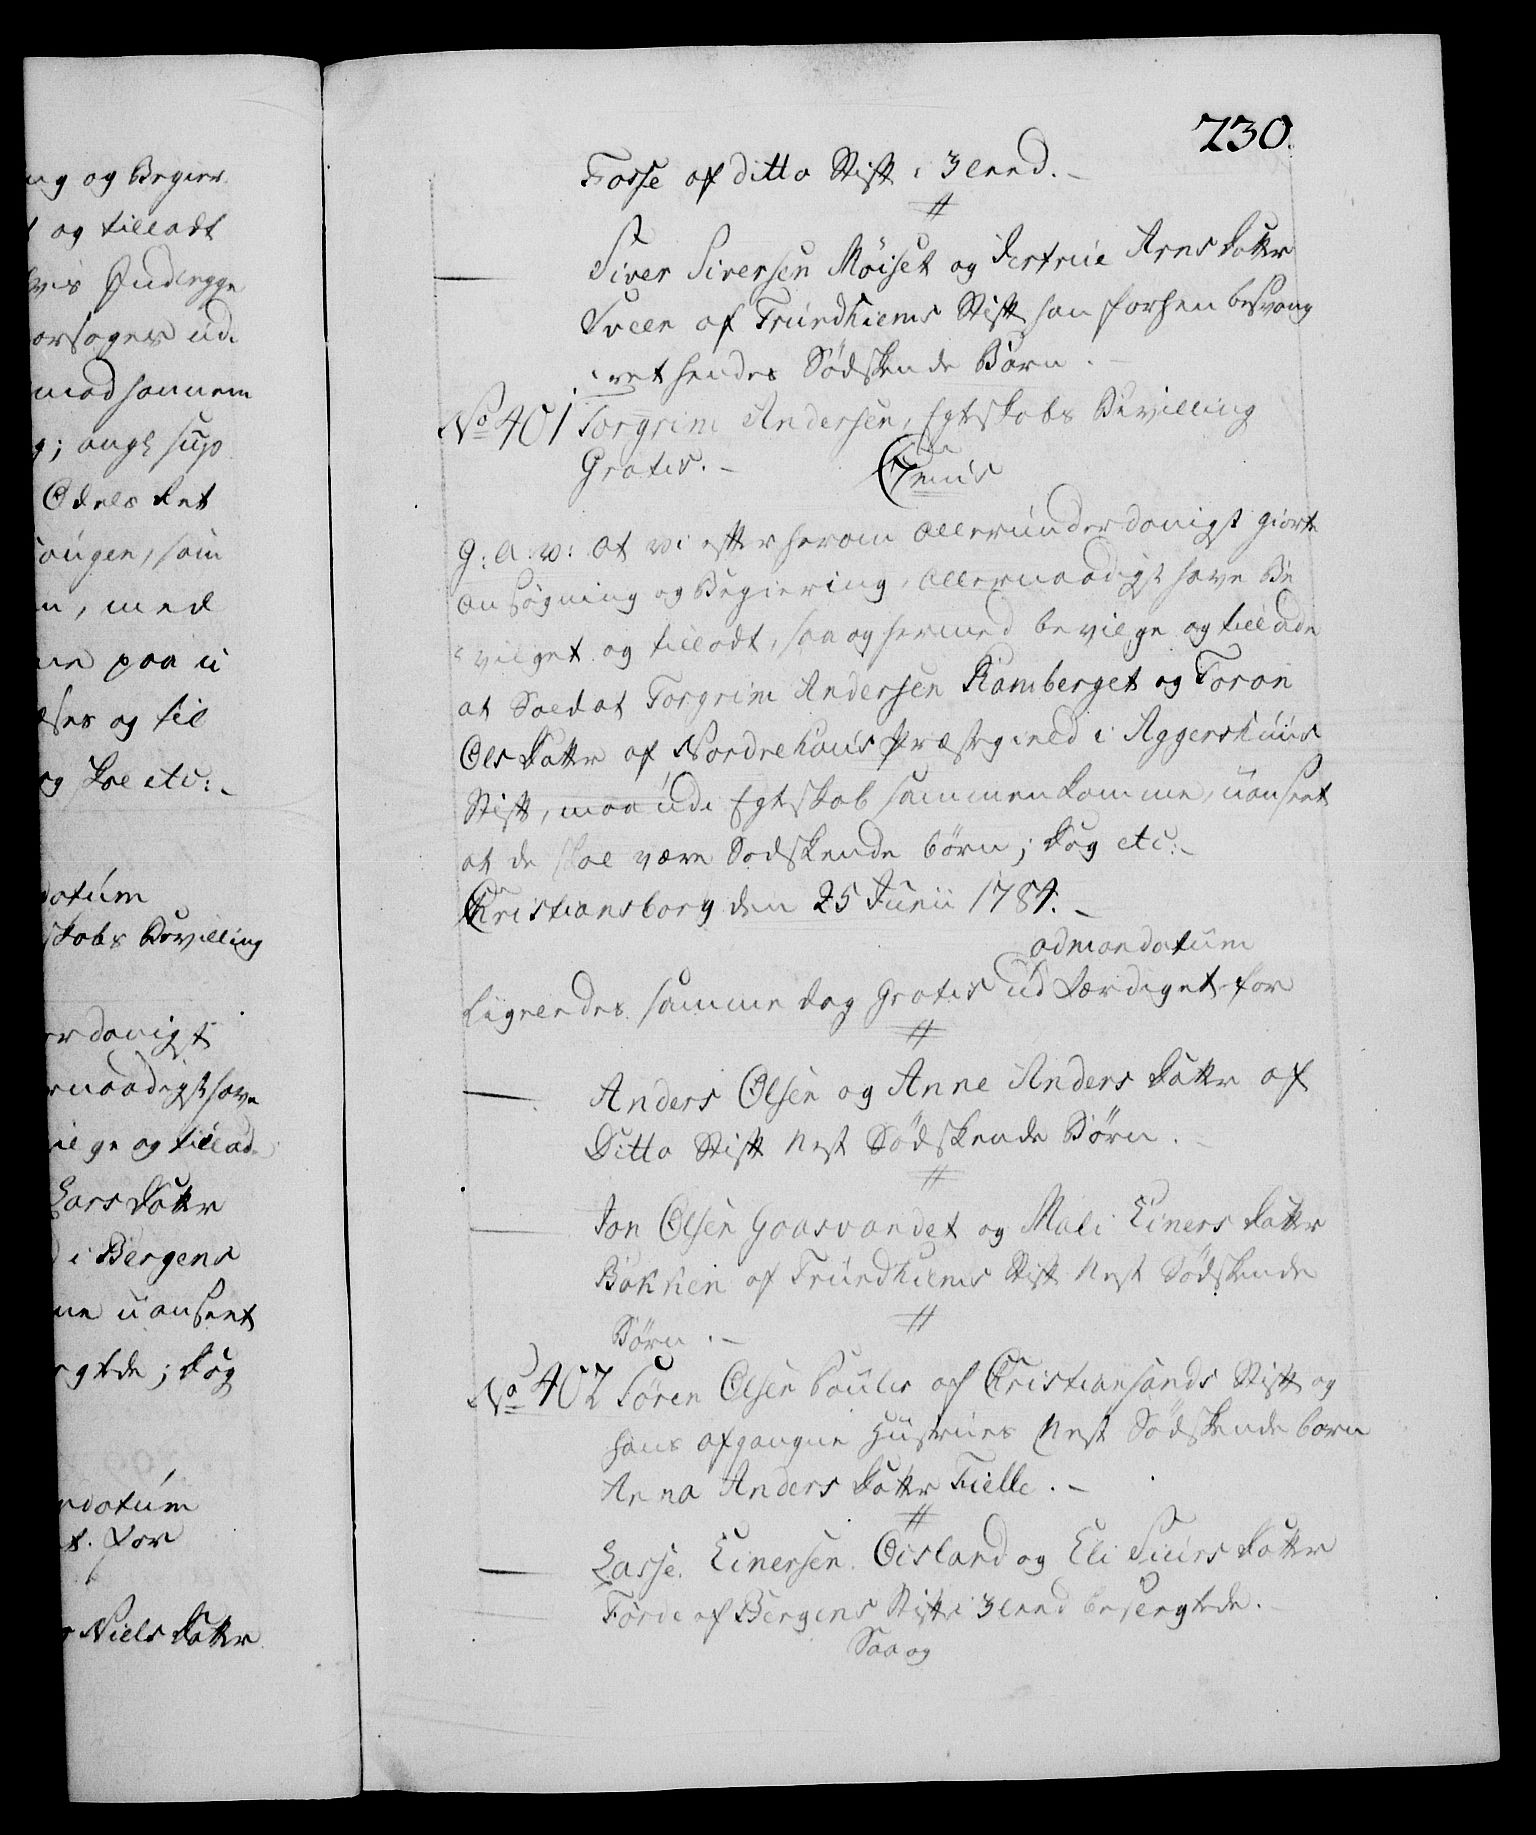 ng og Begier
og tilladt
vis Indlægge
orsager udi
mod hannem
g; angl Supp
Odels Ret
n, med
ne paa u
og til
og skee etc:
datum
skabs Bevilling
erdanigst
rnaadigst have
vilge og tillad
Lars Datter
i Bergens
ne uanseet
gtede; dog
ndatum
t. for
Niels Datter
730.
Fosse af ditto Stift i 3 leed.
Siver Siversen Møiset og Jertrue Arns Datter
Sveen af Trundhiems Stift han forhen besvang
ret hendes Sødskende Barn.
No 401 Torgrim Andersen, Egteskabs Bevilling
Gratis. Genus
G: A: V: at vi efter herom allerunderdanigst giorte
Ansøgning og Begiering, allernaadigst have Be
vilget og tilladt, saa og hermed bevilge og tillade
at Soldat Torgrim Andersen Ramberget og Toron
Ols Datter af Nordrehous Præstegield i Aggershuus
Stift, maa udi Egteskab sammenkomme, uanseet
at de skal være Sødskende børn; dog etc:
Christiansborg den 25 Junii 1784.
ad mandatum
Ligeledes samme dag Gratis udfærdiget for
Anders Olsen og Anne Anders Datter af
Ditto Stift Nest Sødskende Børn.
Jon Olsen Gaasvandet og Mali Einers Datter
Bakken af Trundhiems Stift Nest Sødskende
Børn.
No 402 Sören Olsen Poulis af Christiansands Stift og
hans afgangne Hustrues Nest Sødskende barn
Anna Anders Datter Fielle.
Lasse Einersen Öisland og Eli Siurs Datter
Förde af Bergens Stift i 3 leed besvogrede.
Saa og